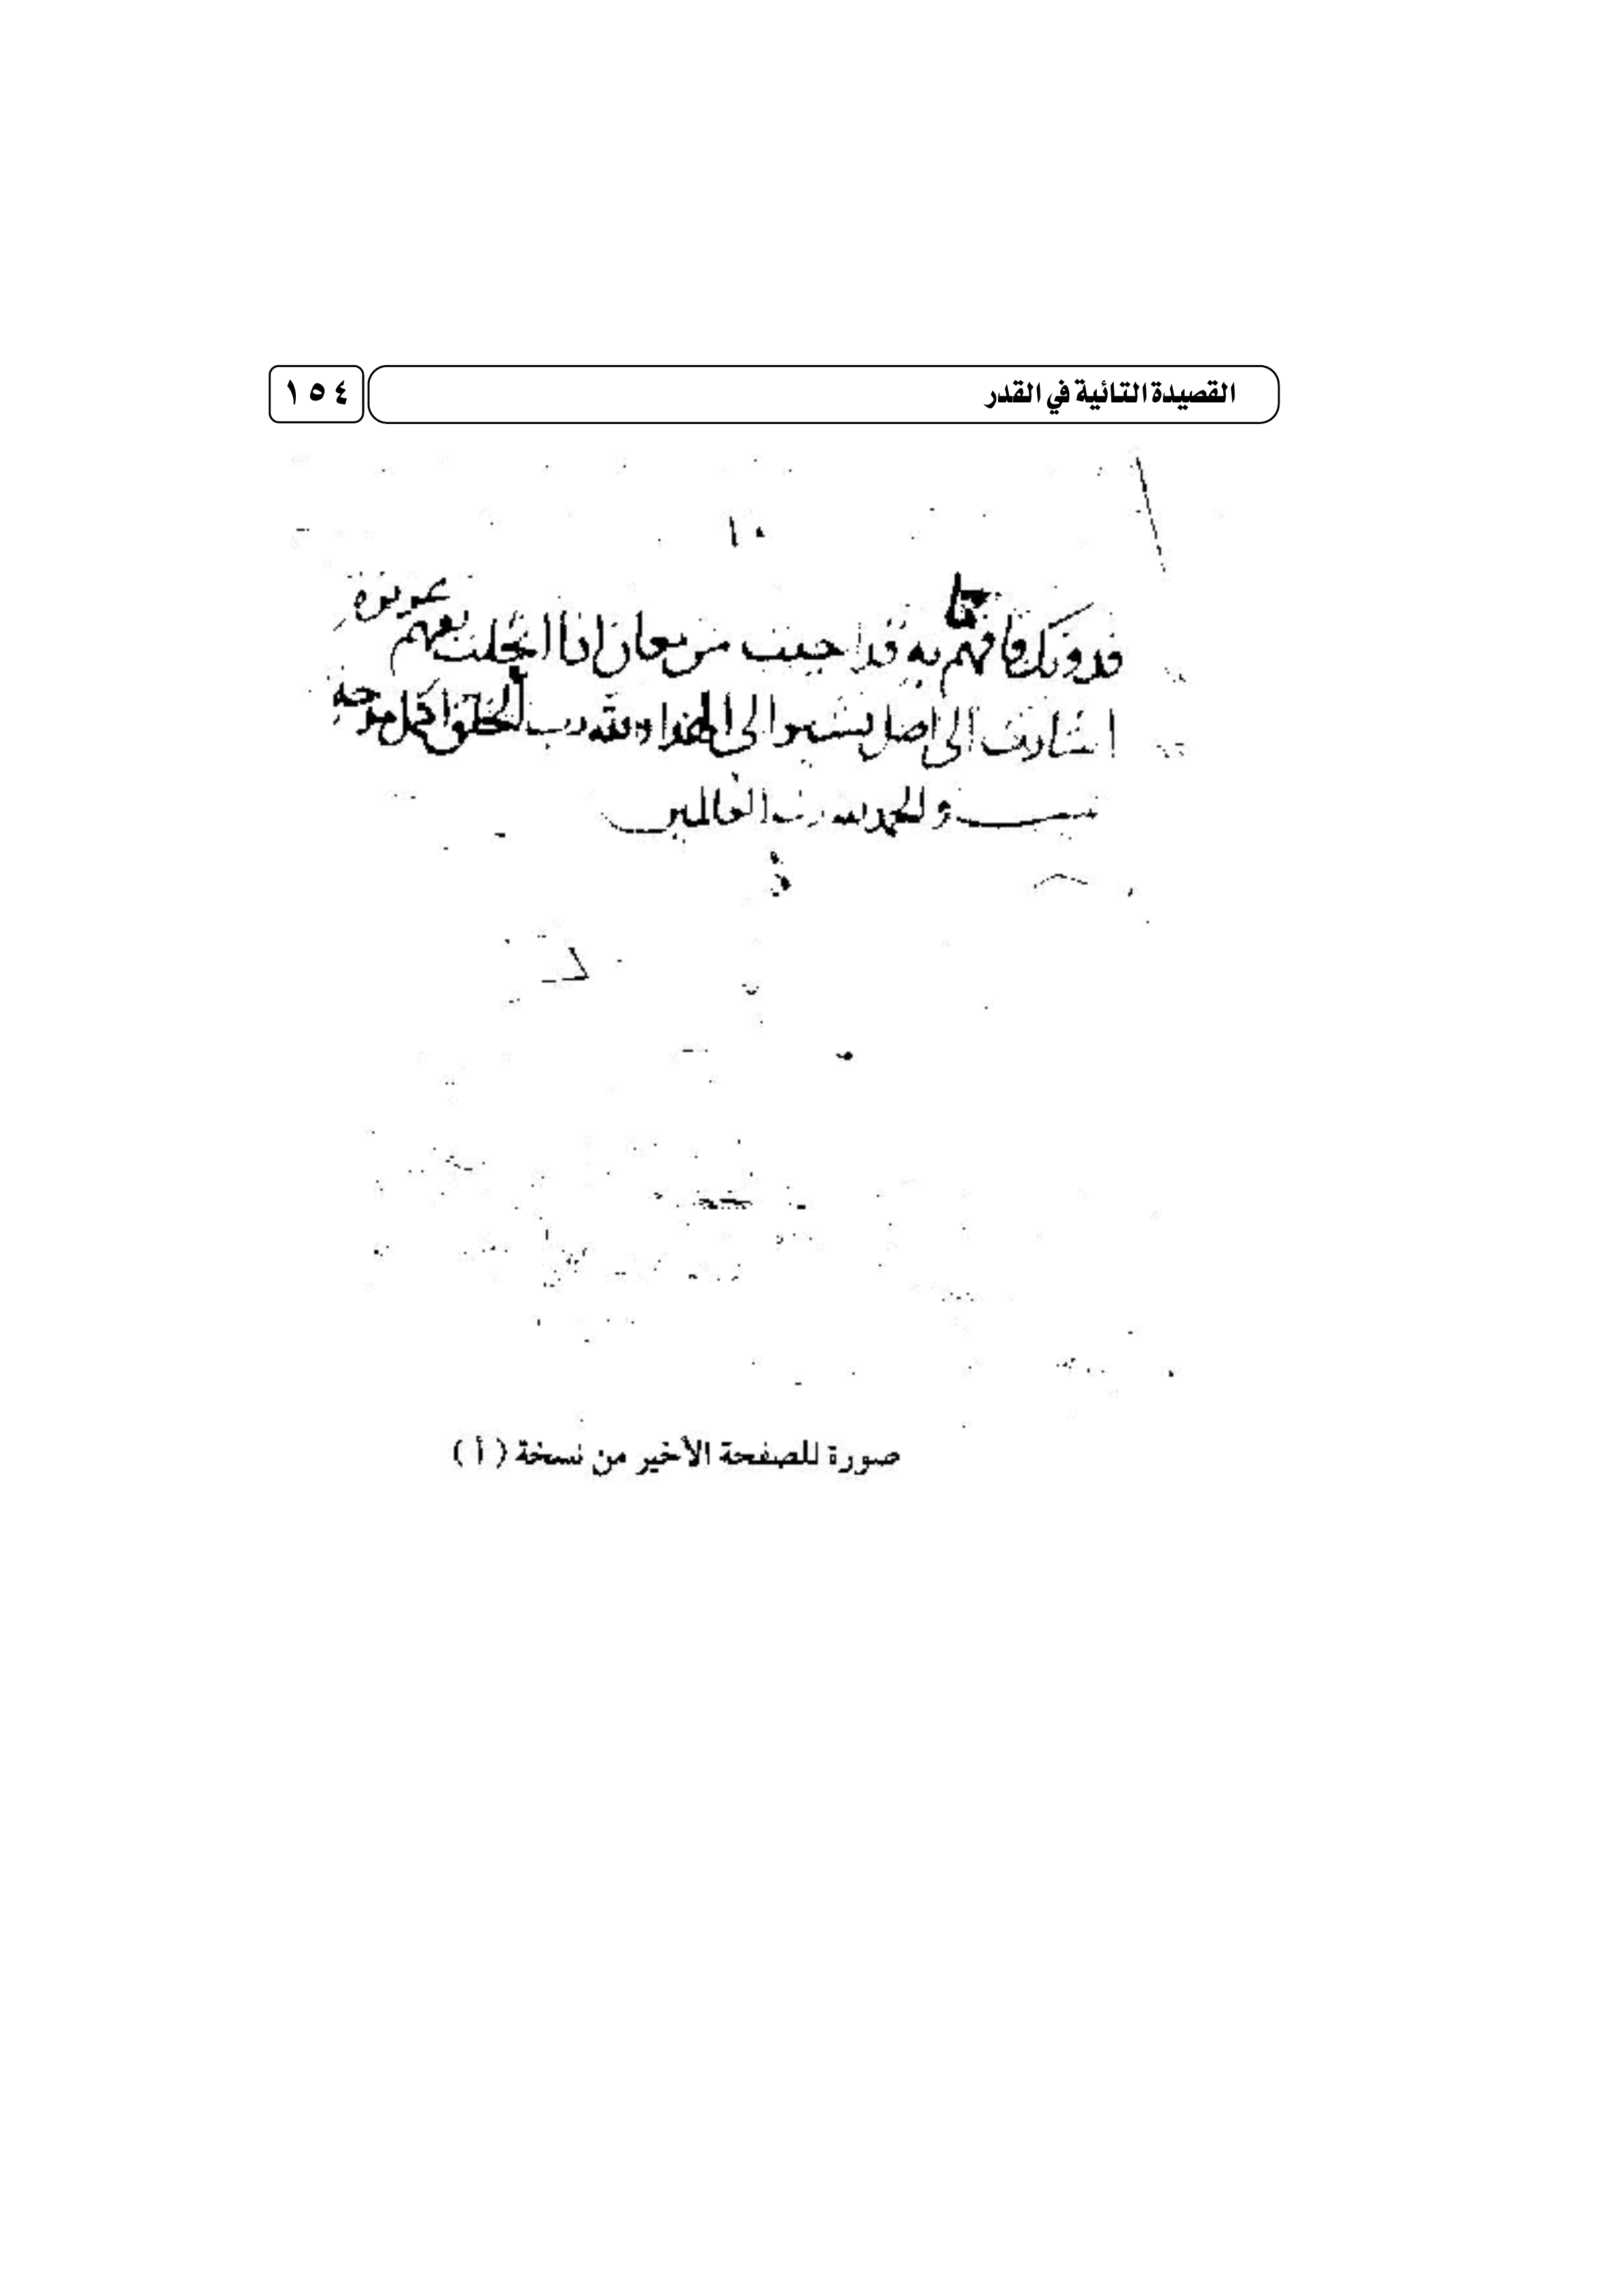 القصيدة التائية في القدر
١٥٤
١٠
فدونك فافهم ما به قد اجيبت من معان اذا انحلت بفهم غريزة
اشارت الى اصل تشير الى الهدى ولله رب الخلق اكمل مدحة
تمت والحمد لله رب العالمين
صورة للصفحة الأخير من نسخة (أ)